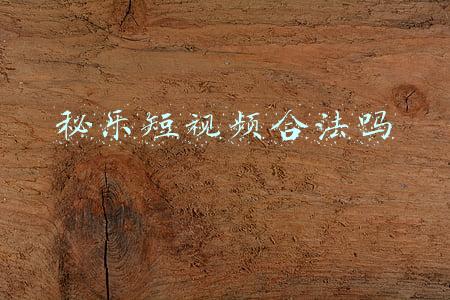 秘乐短视频合法吗